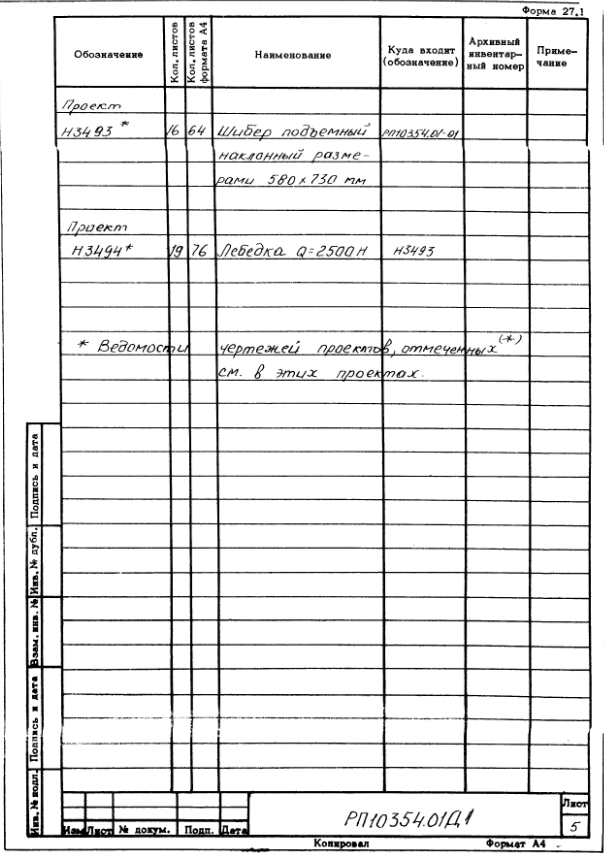 Форма 27.1
Обозначение
Кол. листов
Кол. листов формата А4
Наименование
Куда входит (обозначение)
Архивный инвентар- ный номер
Приме- чание
Проект
Н3493 * 16 64 Шибер подъемный РП10354.01-01
наклонный разме-
рами 580×730 мм
Проект
Н3494* 19 76 Лебедка Q=2500Н Н3493
* Ведомости чертежей проектов, отмеченных (*)
см. в этих проектах.
Подпись и дата
Инв. № дубл.
Взам. инв. №
Подпись и дата
Инв. № подл.
РП10354.01Д1
Лист
5
Изм Лист № докум. Подп. Дата
Копировал Формат А4